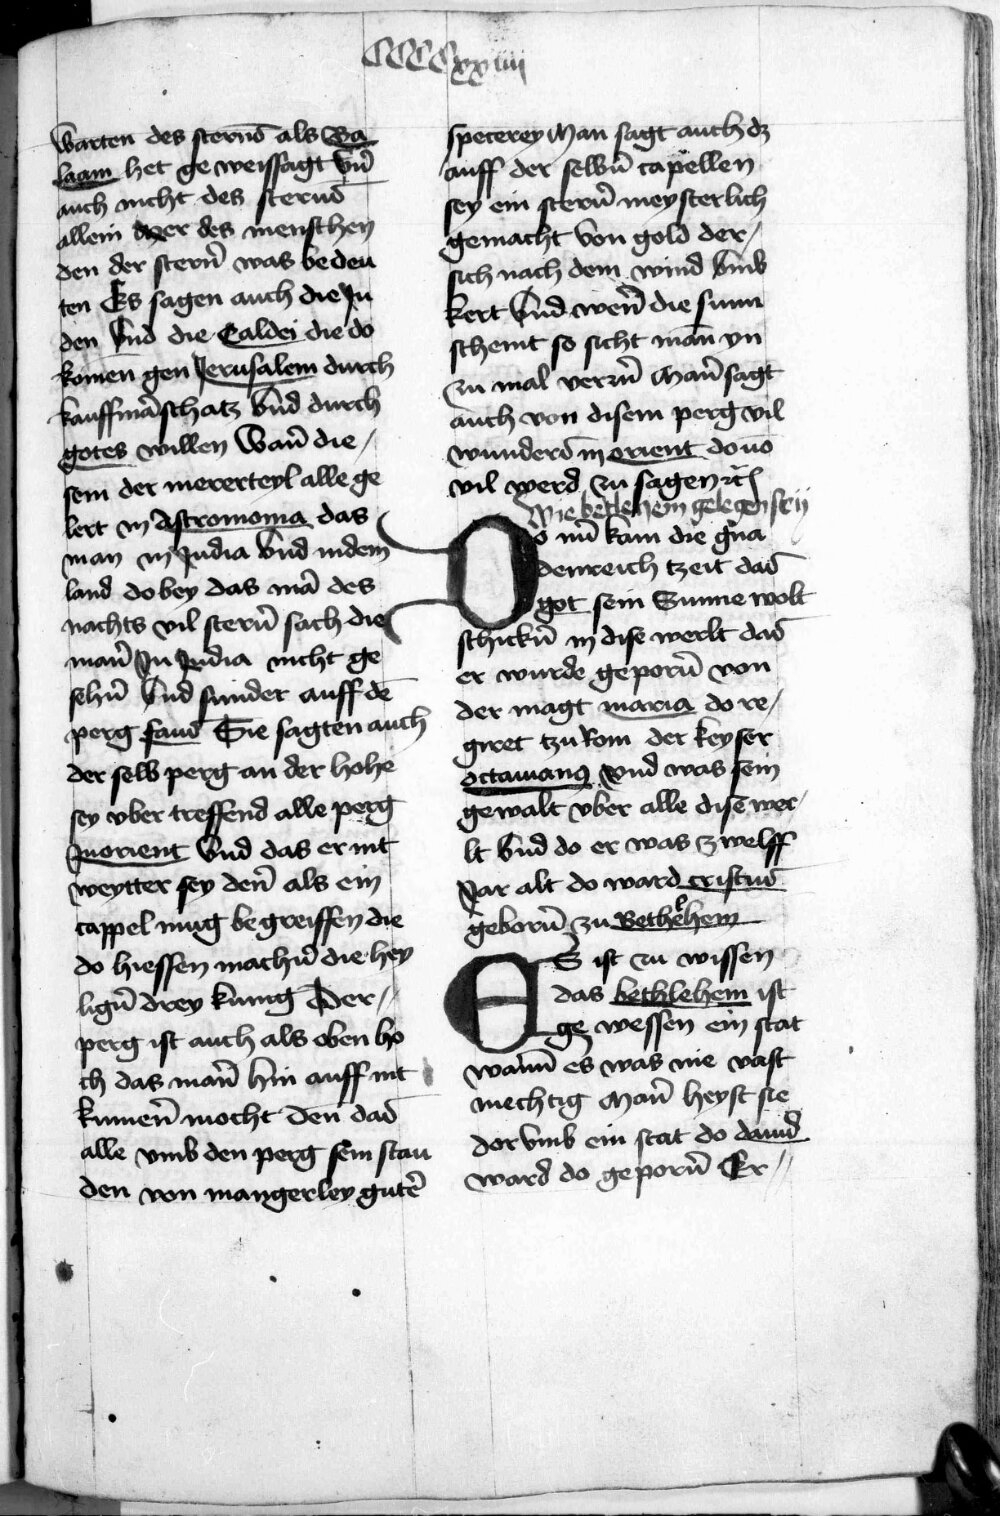 CCCCxxiiii
warten des sternס als Ba
laam het ge weissagt vn̄
auch nicht des sternס
allein ader des menschen
den der stern̄ was bedeu
ten Es sagen auch die Ju
den vnd die Caldei die do
komen gen Jerusalem durch
kauffmāschatz vnd durch
gotes willen wan̄ die /
sein der mererteyl alle ge
lert in Astronomia das
man in India vnd in dem
land dobey das mā des
nachts vil stern̄ sach die
man̄ In Judia nicht ge
sehn̄ vnd sunder auff dē
perg faus Sie sagten auch
der selb perg an der hohe
sey vber treffend alle perg
Inorient vnd das er nit
weytter sey den̄ als ein
cappel mug begreiffen die
do hiessen machn̄ die hey
lign̄ drey kunig Der //
perg ist auch als oben ho
ch das man̄ hin auff nit
kumen̄ mocht den das
alle vmb den perg sein stau
den von mangerley gutē
specerey Man sagt auch dz
auff der selbn̄ capellen
sey ein stern̄ meysterlich
gemacht von gold der /
sich nach dem wind vmb
kert vnd wen̄ die sunn
scheint so sicht man yn
zu mal verrn̄ Man̄ sagt
auch von disem perg vil
wunders in orient douō
vil werd zu sagen etc
Wie betlehem gelegen sey
Do nū kam die gna
denreich tzeit das
got sein Sunne wolt
schickn̄ in dise werlt das
er wurde geporn̄ von
der magt maria do re /
giret tzu Rom der keyser
octauianꝰ vnd was sein
gewalt vber alle dise wer /
lt vnd do er was zwelff
Jar alt do ward cristus
geborn̄ zu Bethlehem
ES ist zu wissen
das bethlehem ist
ge wessen ein stat
wann es was nie vast
mechtig Man̄ heyst sie
dor vmb ein stat do dauid
ward do geporn̄ Er //